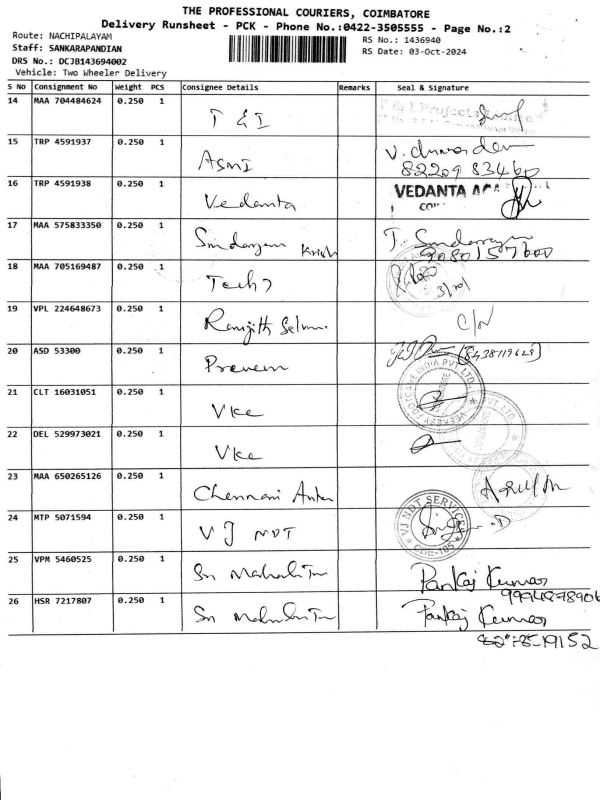 THE PROFESSIONAL COURIERS, COIMBATORE
Delivery Runsheet - PCK - Phone No.:0422-3505555 - Page No.:2
Route: NACHIPALAYAM RS No.: 1436940
Staff: SANKARAPANDIAN RS Date: 03-Oct-2024
DRS No.: DCJB143694002
Vehicle: Two Wheeler Delivery
S No Consignment No Weight PCS Consignee Details Remarks Seal & Signature
14 MAA 704484624 0.250 1 T & I
15 TRP 4591937 0.250 1 Asmi
16 TRP 4591938 0.250 1 Vedanta VEDANTA
17 MAA 575833350 0.250 1 Sundaram Krish
18 MAA 705169487 0.250 1 Tech 7
19 VPL 224648673 0.250 1 Ranjith C/N
20 ASD 53300 0.250 1 Praveen
21 CLT 16031051 0.250 1 Vke
22 DEL 529973021 0.250 1 Vke
23 MAA 650265126 0.250 1 Chennai
24 MTP 5071594 0.250 1 VJ NDT VJ NDT SERVICES
25 VPM 5460525 0.250 1 Sri Pankaj Kumar
26 HSR 7217807 0.250 1 Sri Pankaj Kumar